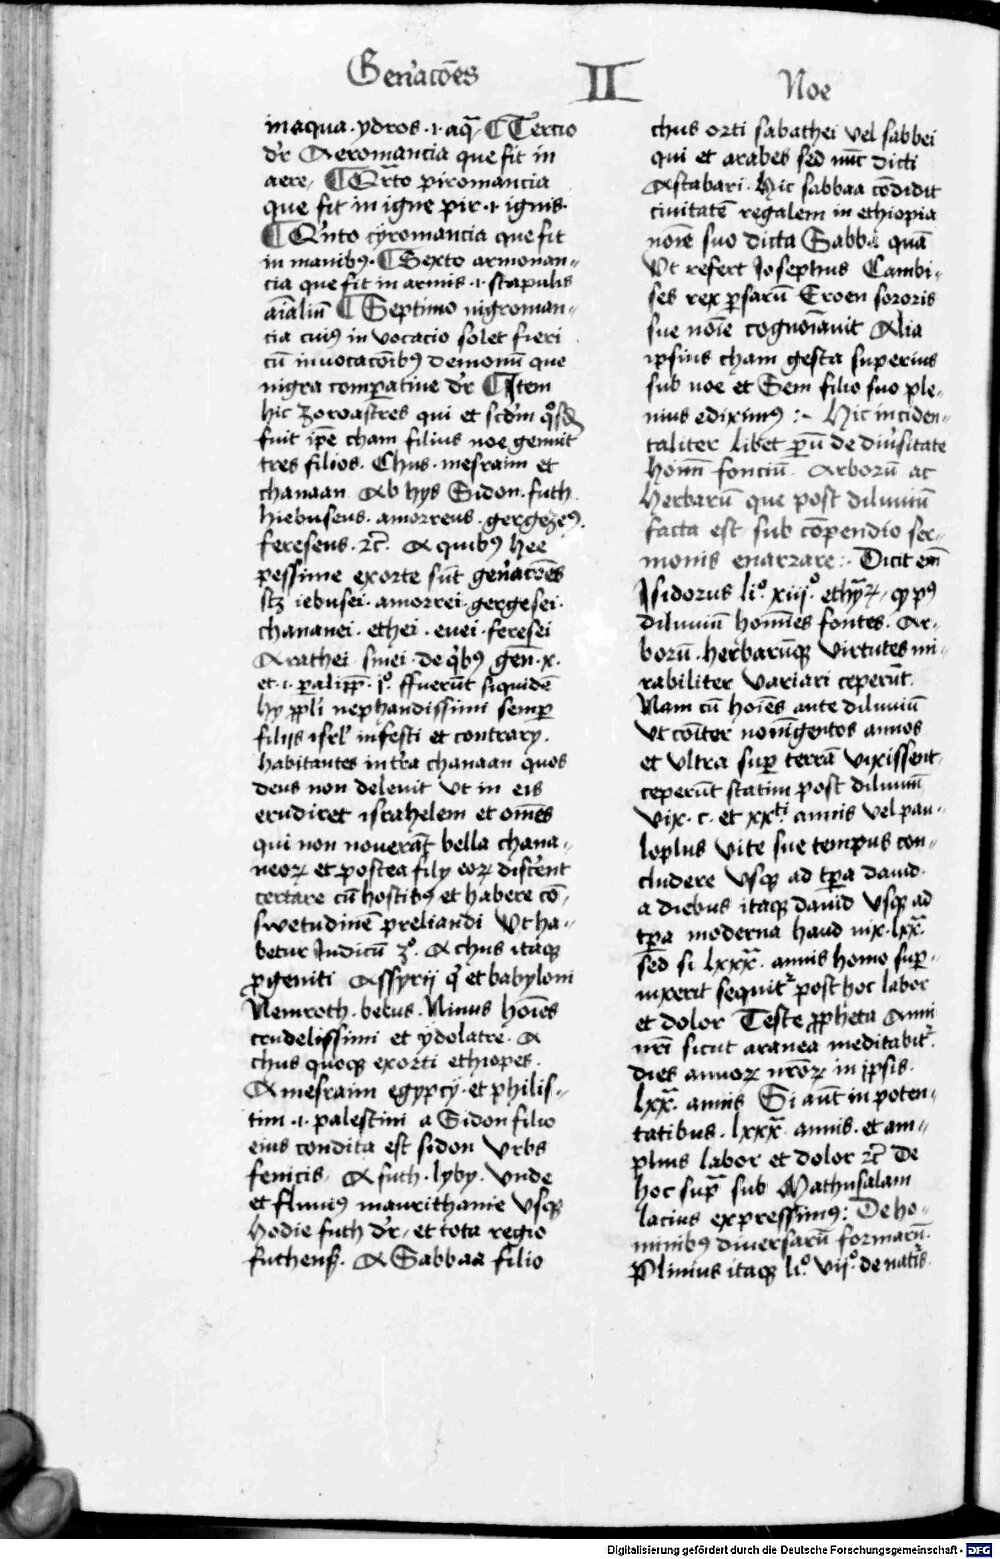 Gen̄acōes
II
Noe
in aqua · ydros · i · aq̄ ¶ Tercio
dr̄ Aeromancia que fit in
aere, ¶ Qr̄to piromancia
que fit in igne pir · i · ignis ·
¶ Qi̇nto cyromancia que fit
in manibꝰ · ¶ Sexto armonan=
cia que fit in armis · i · scapulis
aīaliū ¶ Septimo nigroman=
cia cuiꝰ in vocacio solet fieri
cū invocacōibꝰ demonū que
nigra comparatiue dr̄ ¶ Item
hic Zoroastres qui et scd̄m qͦsd̄
fuit ip̄e cham filius noe genuit
tres filios. Chus · mesraim et
chanaan Ab hys Sidon · futh
hiebuseus · amorreus · gergezeꝰ ·
fereseus · ⁊c̄ · A quibꝰ hee
pessime exorte sūt gen̄acōes
scꝫ iebusei · amorrei · gergesei ·
chananei · ethei · euei · feresei
Arathei sinei · de qͥbꝰ gen̄ · x ·
et · i · ꝑalipp̄ · iͦ · ffuerūt siquidē
hy ppl̄i nephandissimi semꝑ
filijs isrl̄ infesti et contrary ·
habitantes in tra chanaan quos
deus non deleuit vt in eis
erudiret israhelem et om̄es
qui non nouerāt bella chana=
neoꝝ et postea fily eoꝝ disc̄ent
certare cū hostibꝰ et habere cō=
swetudinē preliandi Vt ha=
betur Iudicū 3ͦ · A chus itaqꝫ
ꝓgeniti Assyrij qͥ et babyloni
Nemroth · belus · Ninus hoīes
crudelissimi et ydolatre · A
chus quoqꝫ exorti ethiopes ·
A mesraim egypcy · et philis=
tim · i · palestini a Sidon filio
eius condita est sidon vrbs
fenicis, A futh · lyby · vnde
et fluuiꝰ maurithanie vsqꝫ
hodie futh dr̄, et tota regio
futhensꝭ · A Sabbaa filio
chus orti sabathei vel sabbei
qui et arabes sed nūc dicti
Astabari · Hic sabbaa cōdidit
ciuitatē regalem in ethiopia
noīe suo dicta Sabba quā
Vt refert Iosephus Cambi=
ses rex ꝑsarū Eroen sororis
sue noīe cognoīauit Alia
ipsius cham gesta superius
sub noe et Sem filio suo ple=
nius ediximꝰ :~ Hic inciden=
taliter libet ꝑū de diu̇sitate
hoīm̄ fonciū Arborū ac
Herbarū que post diluuiū
facta est sub cōpendio ser=
monis enarrare :· Dicit em̄
Isidorus liͦ · xiijͦ · ethy̅ꝝ, qꝫ pꝰ
diluuiū homīes fontes · Ar=
borū · herbarūqꝫ virtutes mi=
rabiliter variari ceperūt ·
Nam cū hoīes ante diluuiū
vt cōiter nonīgentos annos
et vltra suꝑ terrā vixissent ·
ceperūt statim post diluuiū
vix · c · et xxͭⁱ annis vel pau=
loplus vite sue tempus con=
cludere vsqꝫ ad tꝑa dauid ·
a diebus itaqꝫ dauid vsqꝫ ad
tꝑa moderna haud vix · lxx̄ ·
sed si lxxx̄ · annis homo suꝑ=
vixerit sequit᷑ post hoc labor
et dolor Teste ꝓpheta Anni
nr̄i sicut aranea meditabit᷑ ·
dies annoꝝ nr̄oꝝ in ipsis ·
lxx̄ · annis Si aūt in poten=
tatibus · lxxx̄ · annis · et am=
plius labor et dolor ⁊c̄ De
hoc sup̄ sub Mathusalam
lacius expressimꝰ : De ho=
minibꝰ diuersarū formarū ·
Plinius itaqꝫ liͦ · vijͦ · de natis
Digitalisierung gefördert durch die Deutsche Forschungsgemeinschaft - DFG